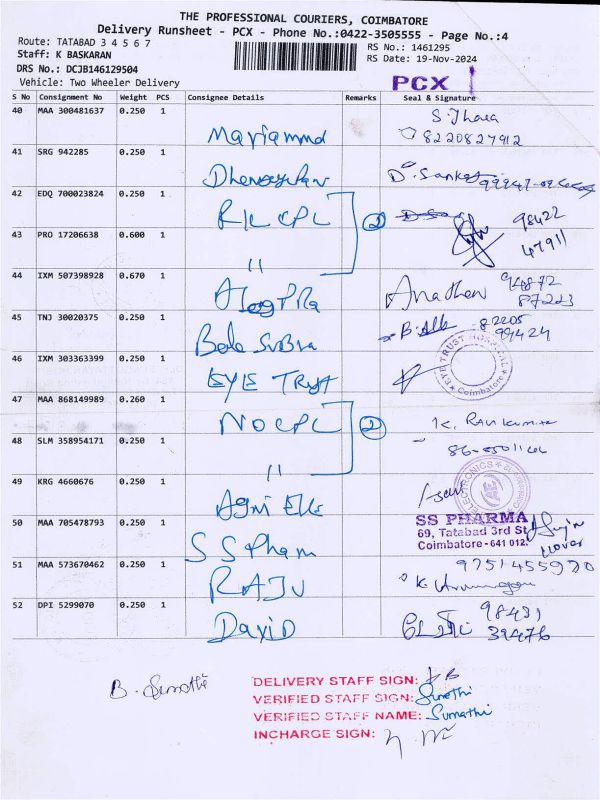 THE PROFESSIONAL COURIERS, COIMBATORE
Delivery Runsheet - PCX - Phone No.:0422-3505555 - Page No.:4
Route: TATABAD 3 4 5 6 7
RS No.: 1461295
Staff: K BASKARAN
RS Date: 19-Nov-2024
DRS No.: DCJB146129504
Vehicle: Two Wheeler Delivery
PCX
S No Consignment No Weight PCS Consignee Details Remarks Seal & Signature
40 MAA 300481637 0.250 1
8220827912
41 SRG 942285 0.250 1
D. Sankar
42 EDQ 700023824 0.250 1
RK CPL 2 98422
43 PRO 17206638 0.600 1
11 47911
44 IXM 507398928 0.670 1
94872
87223
45 TNJ 30020375 0.250 1
Bala Subra 82205
99424
46 IXM 303363399 0.250 1
EYE Trust EYE TRUST HOSPITAL Coimbatore
47 MAA 868149989 0.260 1
NO CPL 2 K. Ravikumar
48 SLM 358954171 0.250 1
11
49 KRG 4660676 0.250 1
Agni Ele ELECTRONICS AE
50 MAA 705478793 0.250 1
S S Pham SS PHARMA
69, Tatabad 3rd St
Coimbatore - 641 012.
51 MAA 573670462 0.250 1
RAJU 9751455970
52 DPI 5299070 0.250 1
David 98431
39476
B. Sumathi
DELIVERY STAFF SIGN: KB
VERIFIED STAFF SIGN: Sumathi
VERIFIED STAFF NAME: Sumathi
INCHARGE SIGN: